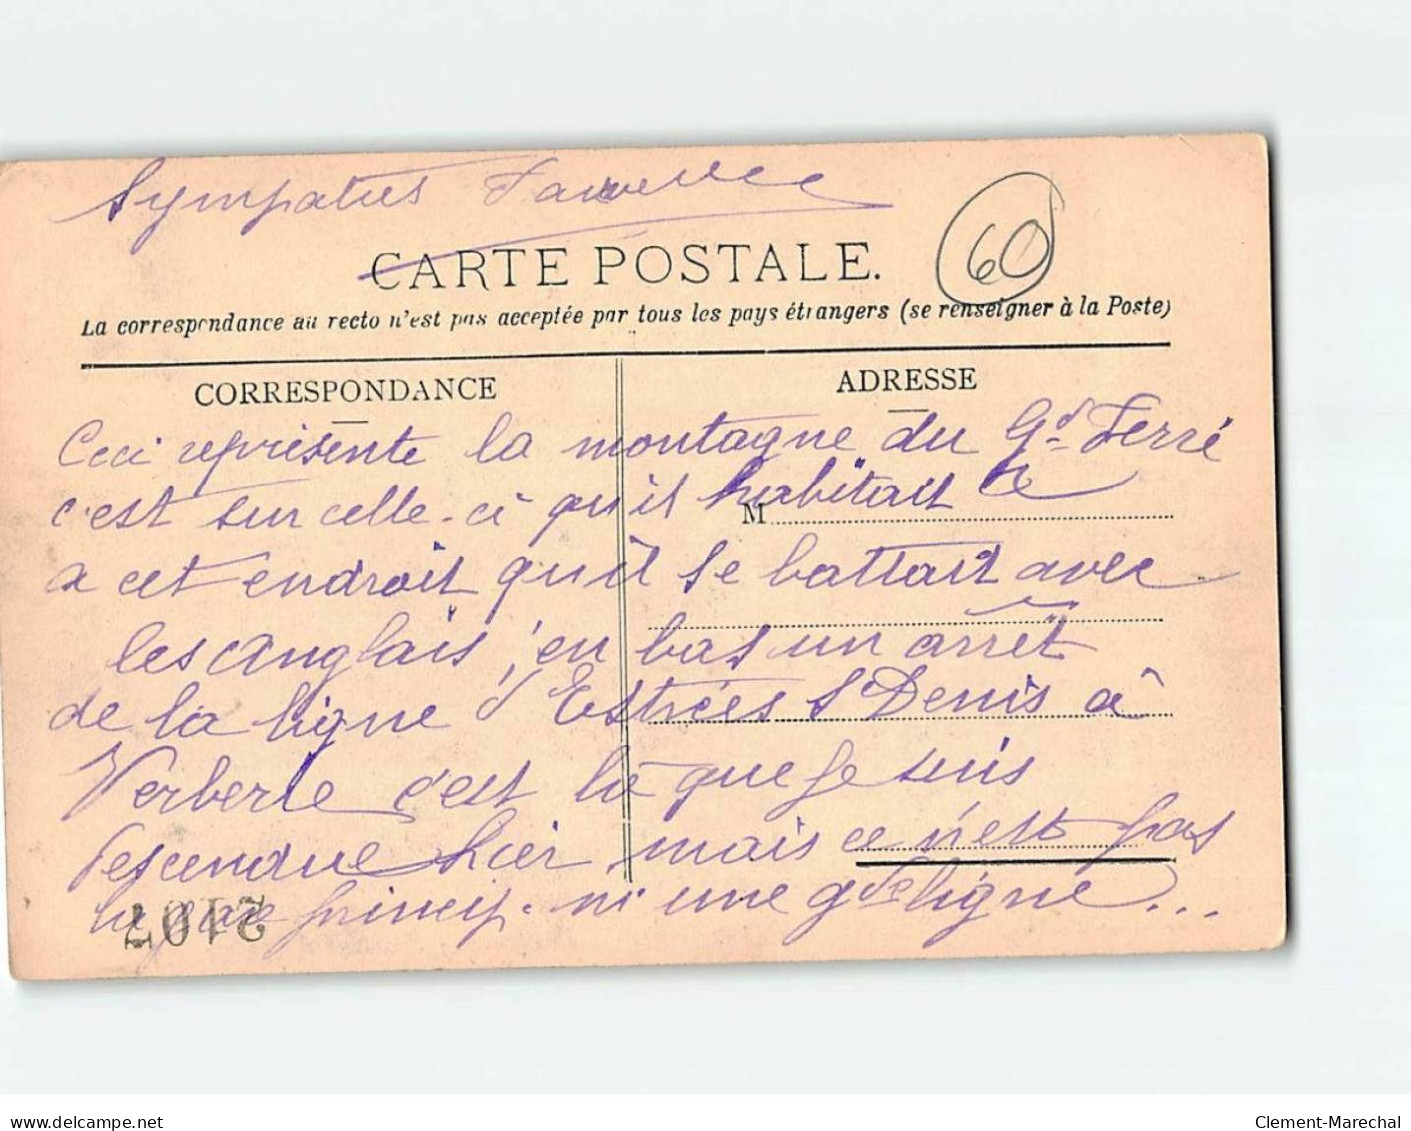 Sympatus
60
CARTE POSTALE.
La correspondance au recto n'est pas acceptée par tous les pays étrangers (se renseigner à la Poste)
CORRESPONDANCE
ADRESSE
M
Ceci représente la montagne du Gd Ferré
c'est sur celle-ci qu'il habitait
a cet endroit qu'il se battait avec
les anglais, en bas un arrêt
de la ligne d'Estrées St Denis à
Verberie c'est là que je suis
descendue hier mais ce n'est pas
la gare princip. ni une gde ligne...
2107
delcampe.net
Clement-Marechal